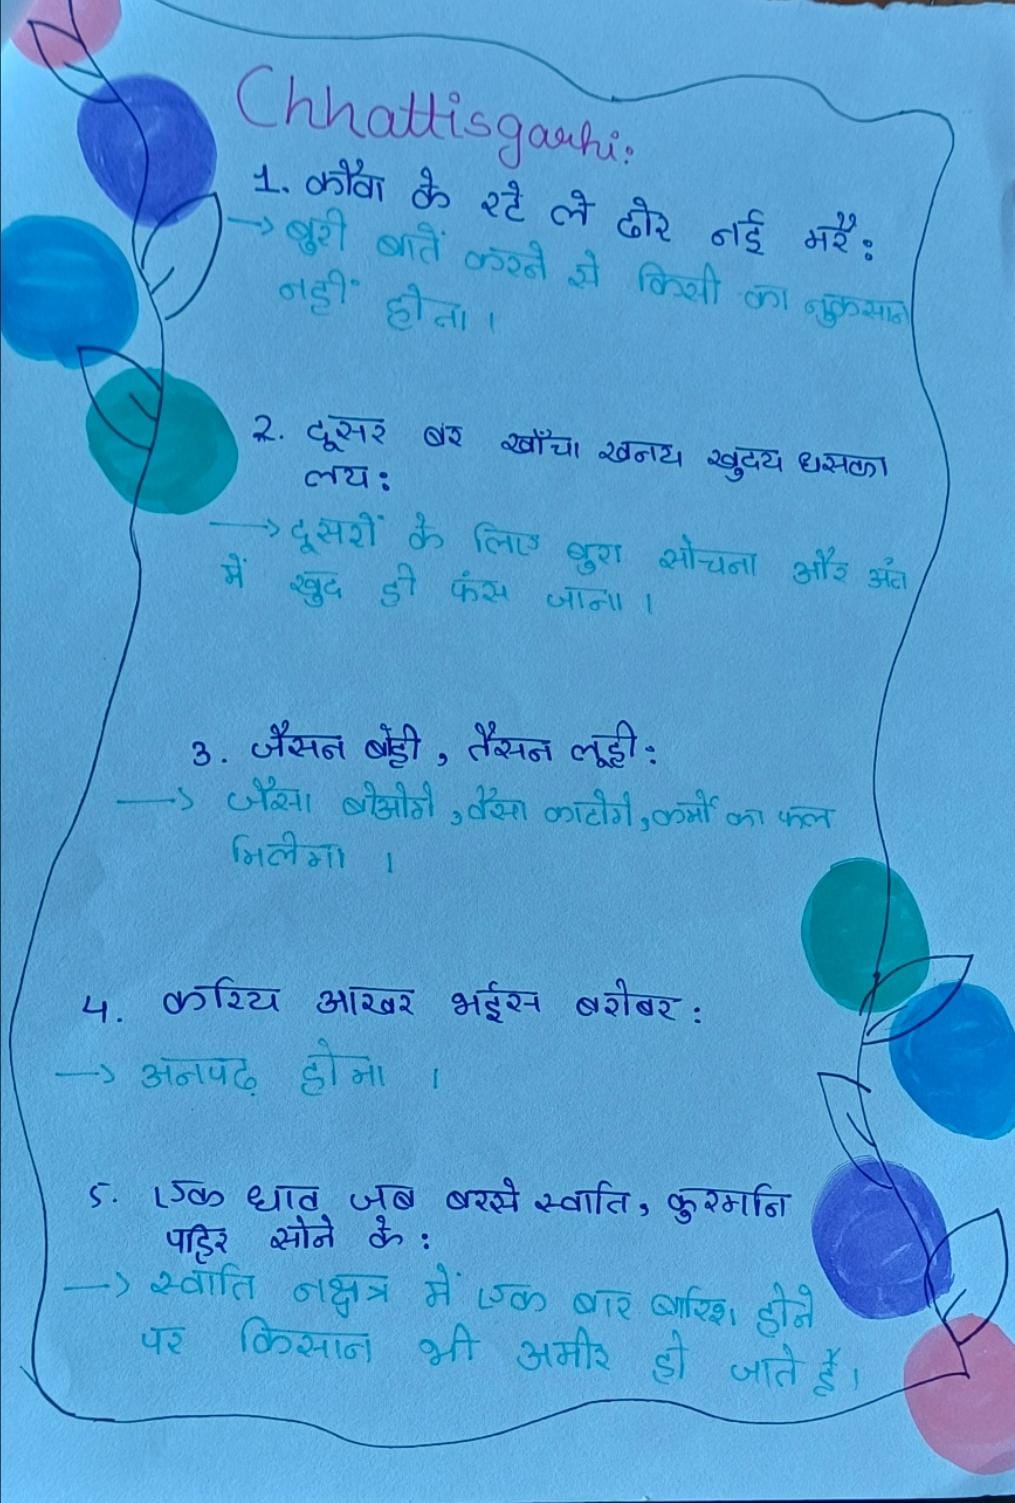 Chhattisgarhi:
1. कौवा के रटे ले ढोर नई मरै:
→ बुरी बातें करने से किसी का नुकसान
नहीं होता।
2. दूसर बर खाँचा खनय खुदय धसका
लय:
→ दूसरों के लिए बुरा सोचना और अंत
में खुद ही फंस जाना।
3. जैसन बोही, तैसन लूही:
→ जैसा बोओगे, वैसा काटोगे, कर्मों का फल
मिलेगा।
4. करिय आखर भईस बरोबर:
→ अनपढ़ होना।
5. एक धाव जब बरसे स्वाति, कुरमनि
पहिर सोने के:
→ स्वाति नक्षत्र में एक बार बारिश होने
पर किसान भी अमीर हो जाते हैं।